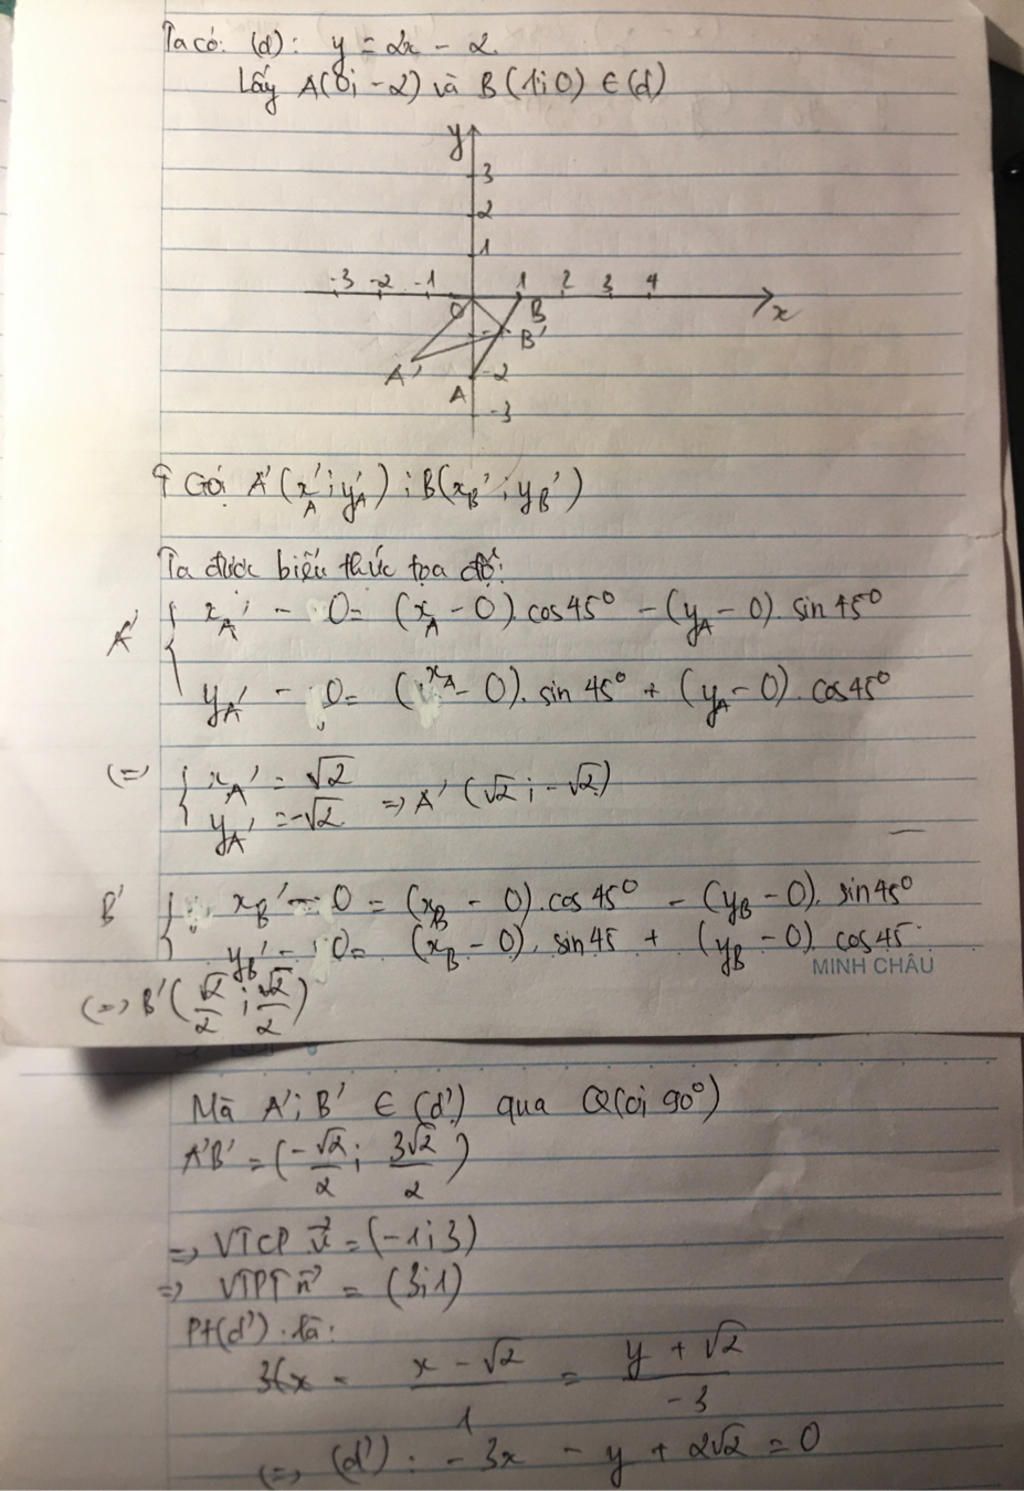 Ta có: (d): y = 2x - 2.
Lấy A(0; -2) và B(1;0) ∈ (d)
y
3
2
1
-3 -2 -1 1 2 3 4
O B x
B'
A' -2
A
-3
Gọi A'(x'A; y'A); B(xB'; yB')
Ta được biểu thức tọa độ:
A' { xA' - 0 = (xA - 0). cos45° - (yA - 0). sin 45°
yA' - 0 = (xA - 0). sin 45° + (yA - 0). cos45°
(=) { xA' = √2
yA' = -√2 => A' (√2; -√2)
B' { xB' - 0 = (xB - 0). cos 45° - (yB - 0). sin45°
yB' - 0 = (xB - 0). sin 45 + (yB - 0). cos 45.
MINH CHÂU
(=) B'(√2/2; √2/2)
Mà A'; B' ∈ (d') qua Q(O; 90°)
A'B' = (-√2/2; 3√2/2)
=> VTCP u⃗ = (-1; 3)
=> VTPT n⃗ = (3; 1)
Pt(d') là:
3(x - (x - √2)/1 = (y + √2)/-3
(=) (d'): -3x - y + 2√2 = 0